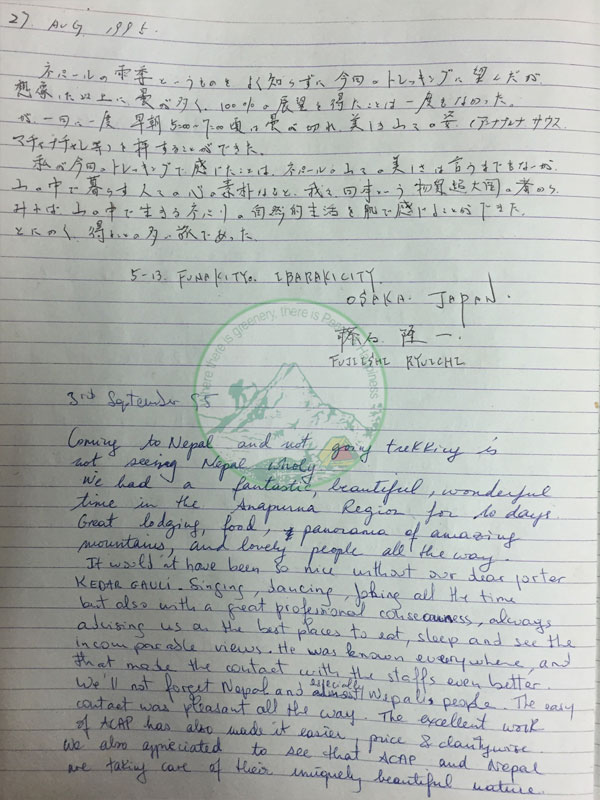 27 AUG 1995.
ネパールの雨季というものをよく知らずに今回のトレッキングに望んだが
想像した以上に曇が多く、100%の展望を得たことは一度もなかった。
が一日に一度 早朝 5:00~7:00頃に曇が切れ 美しき山々の姿 (アンナプルナサウス
マチャプチャレ等)を拝することができた。
私が今回のトレッキングで感じたことは、ネパールの山々の美しさは言うまでもないが、
山の中で暮らす人々の心の素朴なこと、我々日本という物質超大国の者から
みれば 山の中で生きるネパリの自然的生活を肌で感じることができた。
とにかく、得るものの多い旅であった。
5-13. FUNAKITYO. IBARAKICITY.
OSAKA. JAPAN.
藤石 隆一.
FUJIISHI RYUICHI
Where there is greenery, there is People's Happiness
3rd September 95
Coming to Nepal and not going trekking is
not seeing Nepal wholy
We had a fantastic, beautiful, wonderful
time in the Anapurna Region for 10 days
Great lodging, food, panorama of amazing
mountains, and lovely people all the way.
It would'nt have been so nice without our dear porter
KEDAR GAULI. Singing, dancing, joking all the time
but also with a great professional, always
advising us on the best places to eat, sleep and see the
incomparable views. He was known everywhere, and
that made the contact with the staffs even better.
We'll not forget Nepal and especially Nepalis people. The easy
contact was pleasant all the way. The excellent work
of ACAP has also made it easier, price & claritywise
We also appreciated to see that ACAP and Nepal
are taking care of their uniquely beautiful nature.